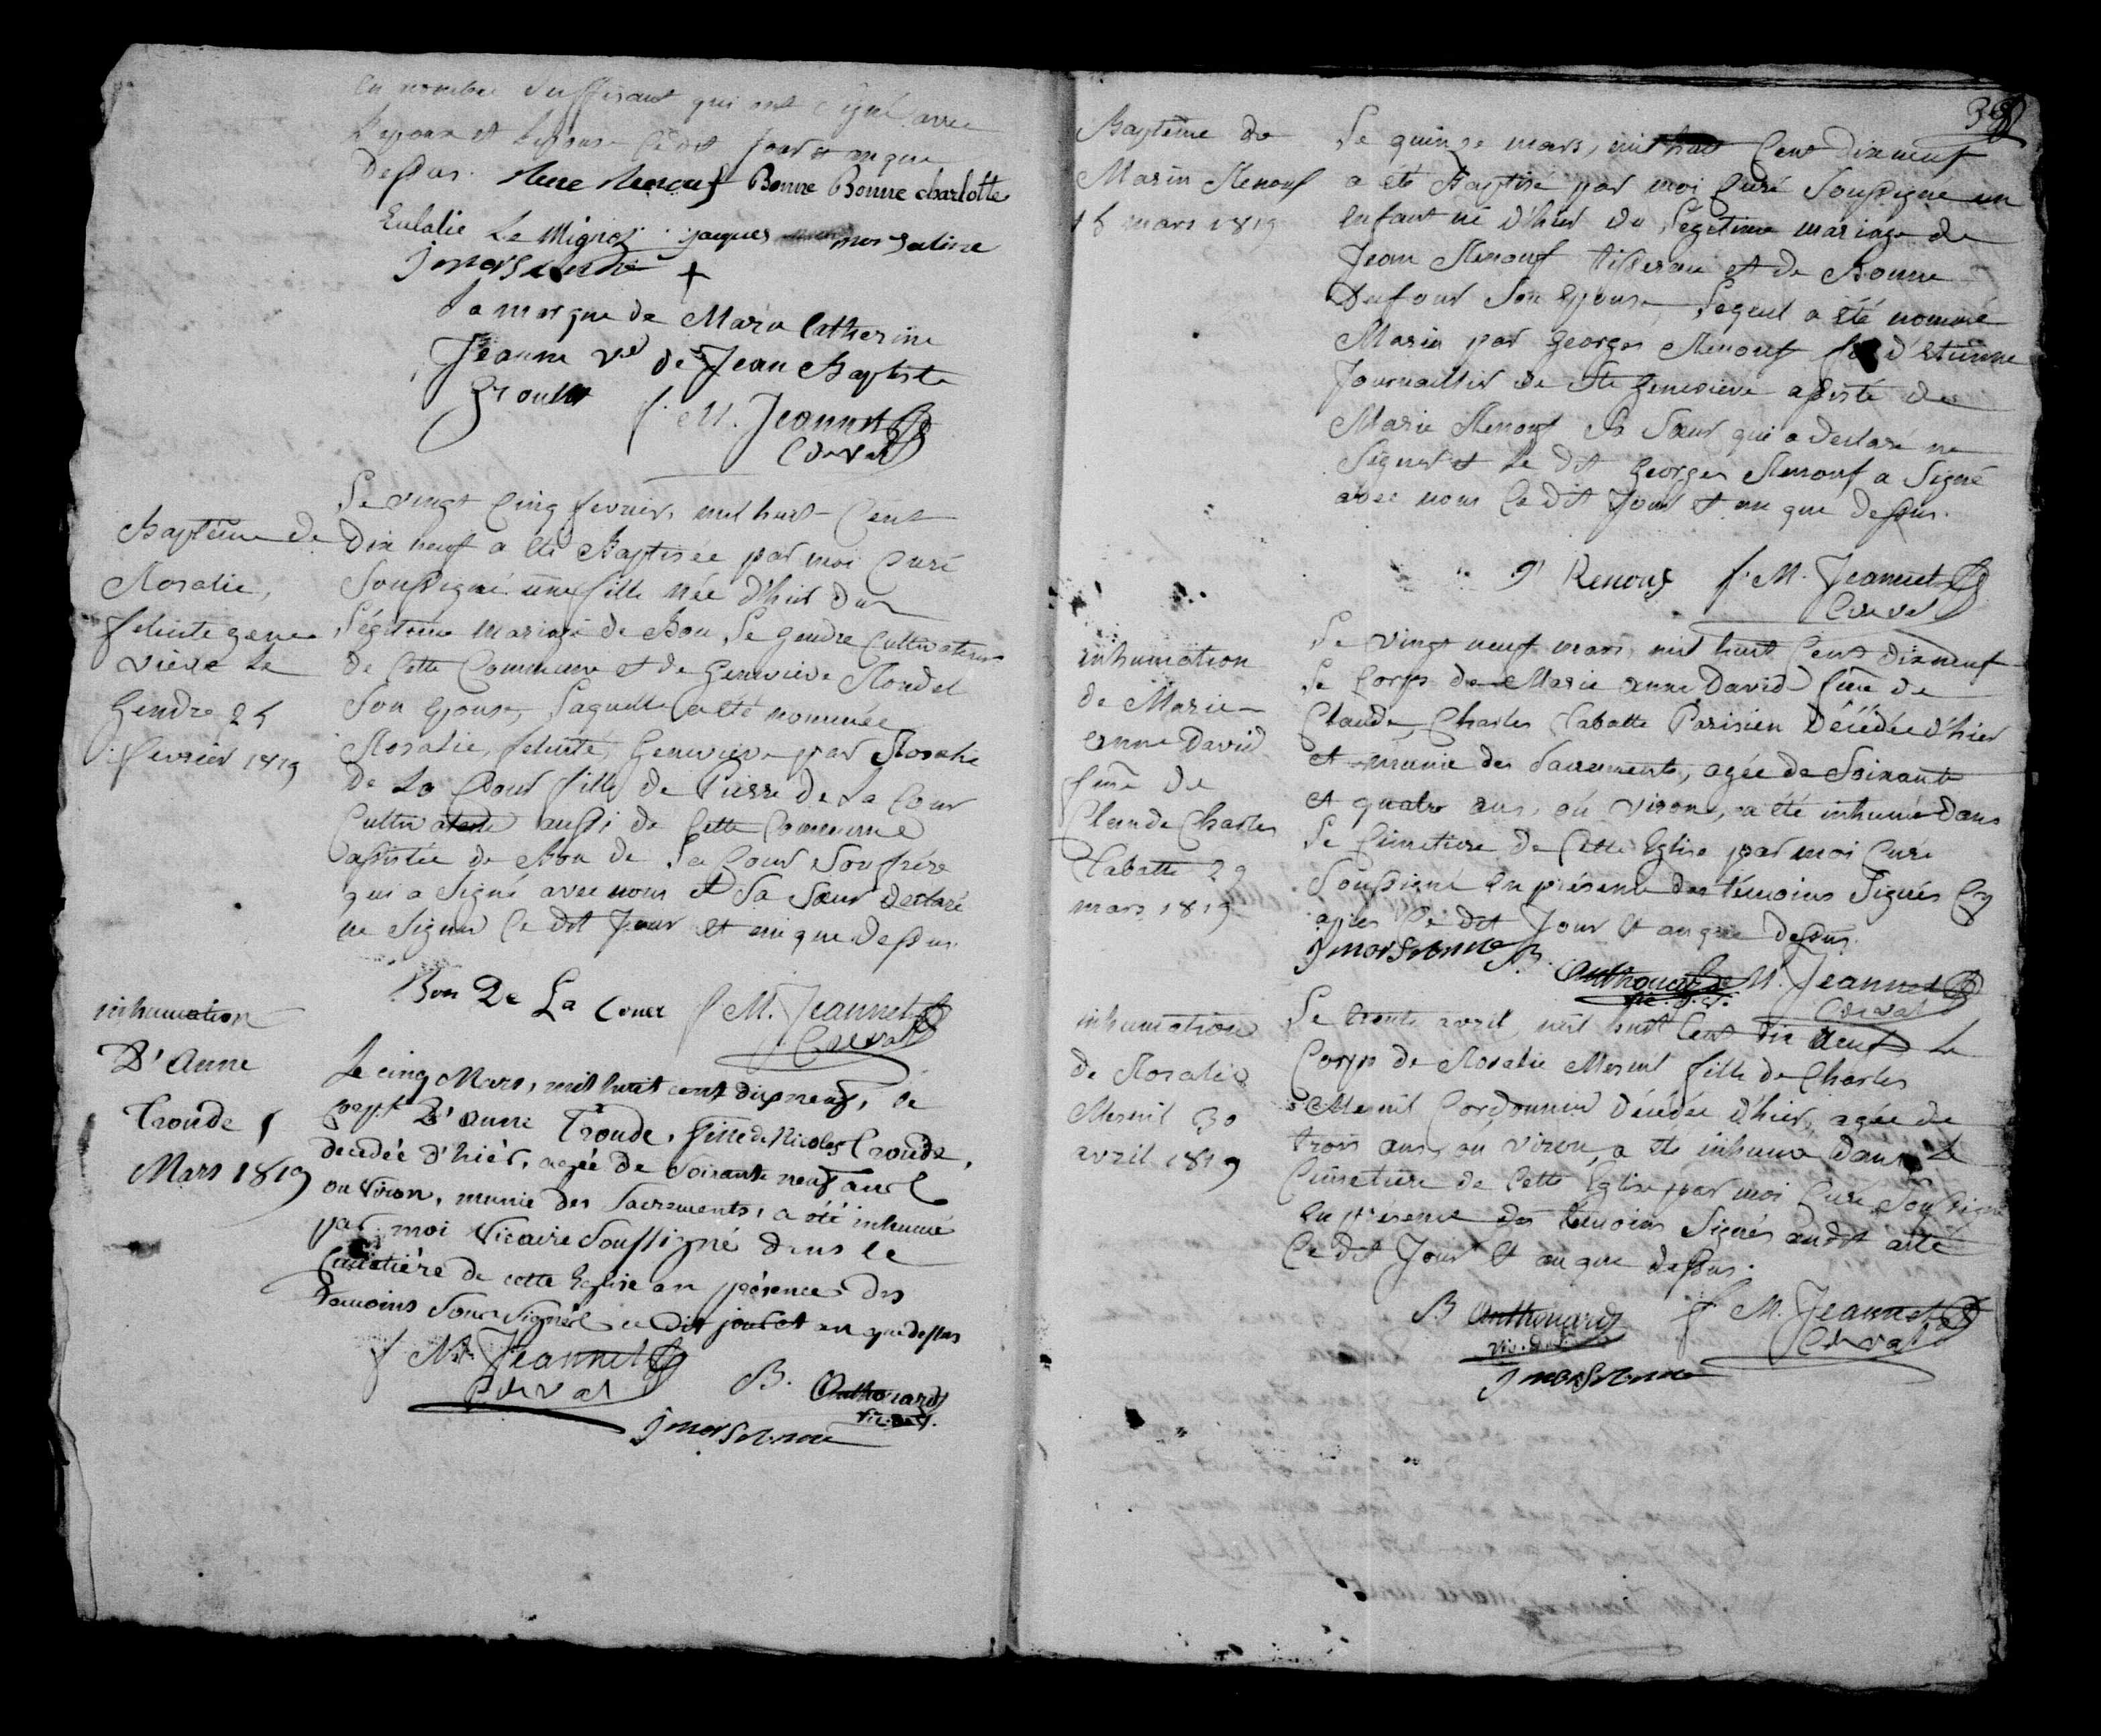 en nombre suffisant qui ont signé avec
l'epoux et l'epouse ce dit jour et an que
dessus. Renouf Bonne Bonne charlotte
Eulalie Le Mignot jacques
+
la marque de Marie Catherine
Jeanne Vve de Jean Baptiste
f. M. Jeannet
C de val
Baptême de
Rosalie,
felicité gene
viève Le
Gendre 25
fevrier 1819
Le vingt cinq fevrier mil huit Cent
dix neuf a été Baptisée par moi Curé
soussigné une fille née d'hier du
légitime mariage de Bon Le gendre Cultivateur
de cette Commune et de Genevieve Rondel
son epouse, laquelle a été nommée
Rosalie, felicité, Genevieve par Rosalie
de La Cour fille de Pierre de La Cour
Cultivateur aussi de cette Commune
assistée de Bon de La Cour son frère
qui a signé avec nous et sa sœur declaré
ne signer ce dit jour et an que dessus.
Bon De La Cour f M. Jeannet
C de val
inhumation
D'Anne
Troude 5
Mars 1819
Le cinq Mars, mil huit cent dix neuf, le
corps D'anne Troude, fille de Nicolas Troude,
decedée d'hièr, agée de soixante neuf ans
ou viron, munie des Sacrements, a été inhumé
par moi Vicaire Soussigné dans le
Cimetière de cette Eglise en présence des
temoins Soussignés ce dit jour et an que dessus
f M. Jeannet
C de val
B. Anthouard
Vic.
Baptême de
Marin Renouf
15 mars 1819
Le quinze mars, mil huit Cent dix neuf
a été Baptisé par moi Curé soussigné un
enfant né d'hier du légitime mariage de
Jean Renouf tisseran et de Bonne
Dufour son epouse, lequel a été nommé
Marin par Georges Renouf d'Etienne
Journallier de Ste Genevieve assisté de
Marie Renouf sa sœur qui a declaré ne
signer et le dit Georges Renouf a signé
avec nous ce dit jour et an que dessus.
g Renouf f. M. Jeannet
C de val
inhumation
de Marie
anne David
fme de
Claude Charles
Cabotte 29
mars 1819
Le vingt neuf mars mil huit Cent dix neuf
le Corps de Marie anne David fme de
Claude, Charles Cabotte Parisien décédée d'hier
et munie des Sacrements, agée de soixante
et quatre ans, ou viron, a été inhumé dans
le Cimetiere de cette Eglise par moi Curé
soussigné en présence des témoins signés cy
après ce dit jour et an que dessus.
B. Anthouard f M. Jeannet
C de val
inhumation
de Rosalie
Mesnil 30
avril 1819
Le trente avril mil huit Cent dix neuf le
Corps de Rosalie Mesnil fille de Charles
Mesnil Cordonnier décédée d'hier, agée de
trois ans, ou viron, a été inhumé dans le
Cimetiere de cette Eglise par moi Curé soussigné
en présence des témoins signés audit acte
ce dit jour et an que dessus.
B Anthouard f M. Jeannet
C de val